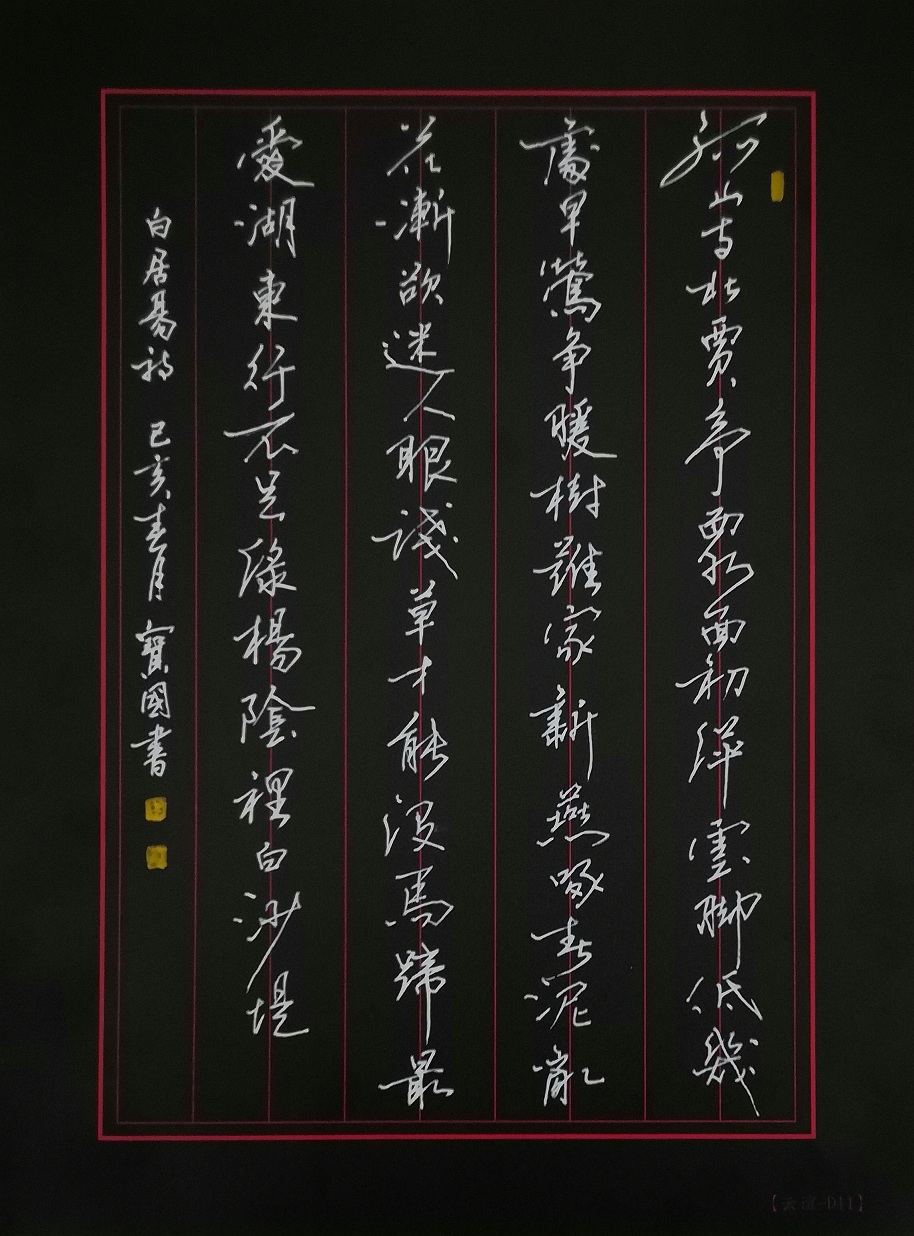 孤山寺北賈亭西水面初平雲脚低幾
處早鶯争暖樹誰家新燕啄春泥亂
花漸欲迷人眼淺草才能沒馬蹄最
愛湖東行不足綠楊陰裡白沙堤
白居易詩 己亥春月 寶國書
-D11】